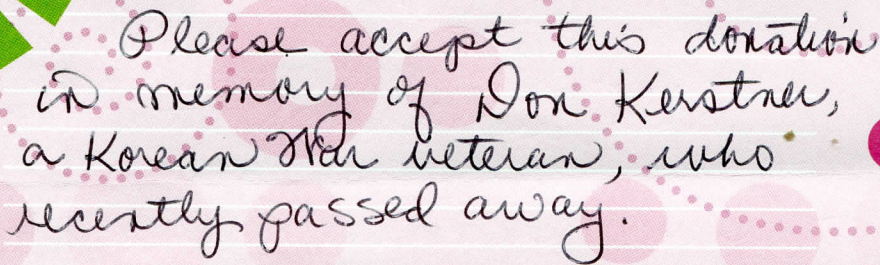 Please accept this donation
in memory of Don Kerstner,
a Korean War veteran, who
recently passed away.